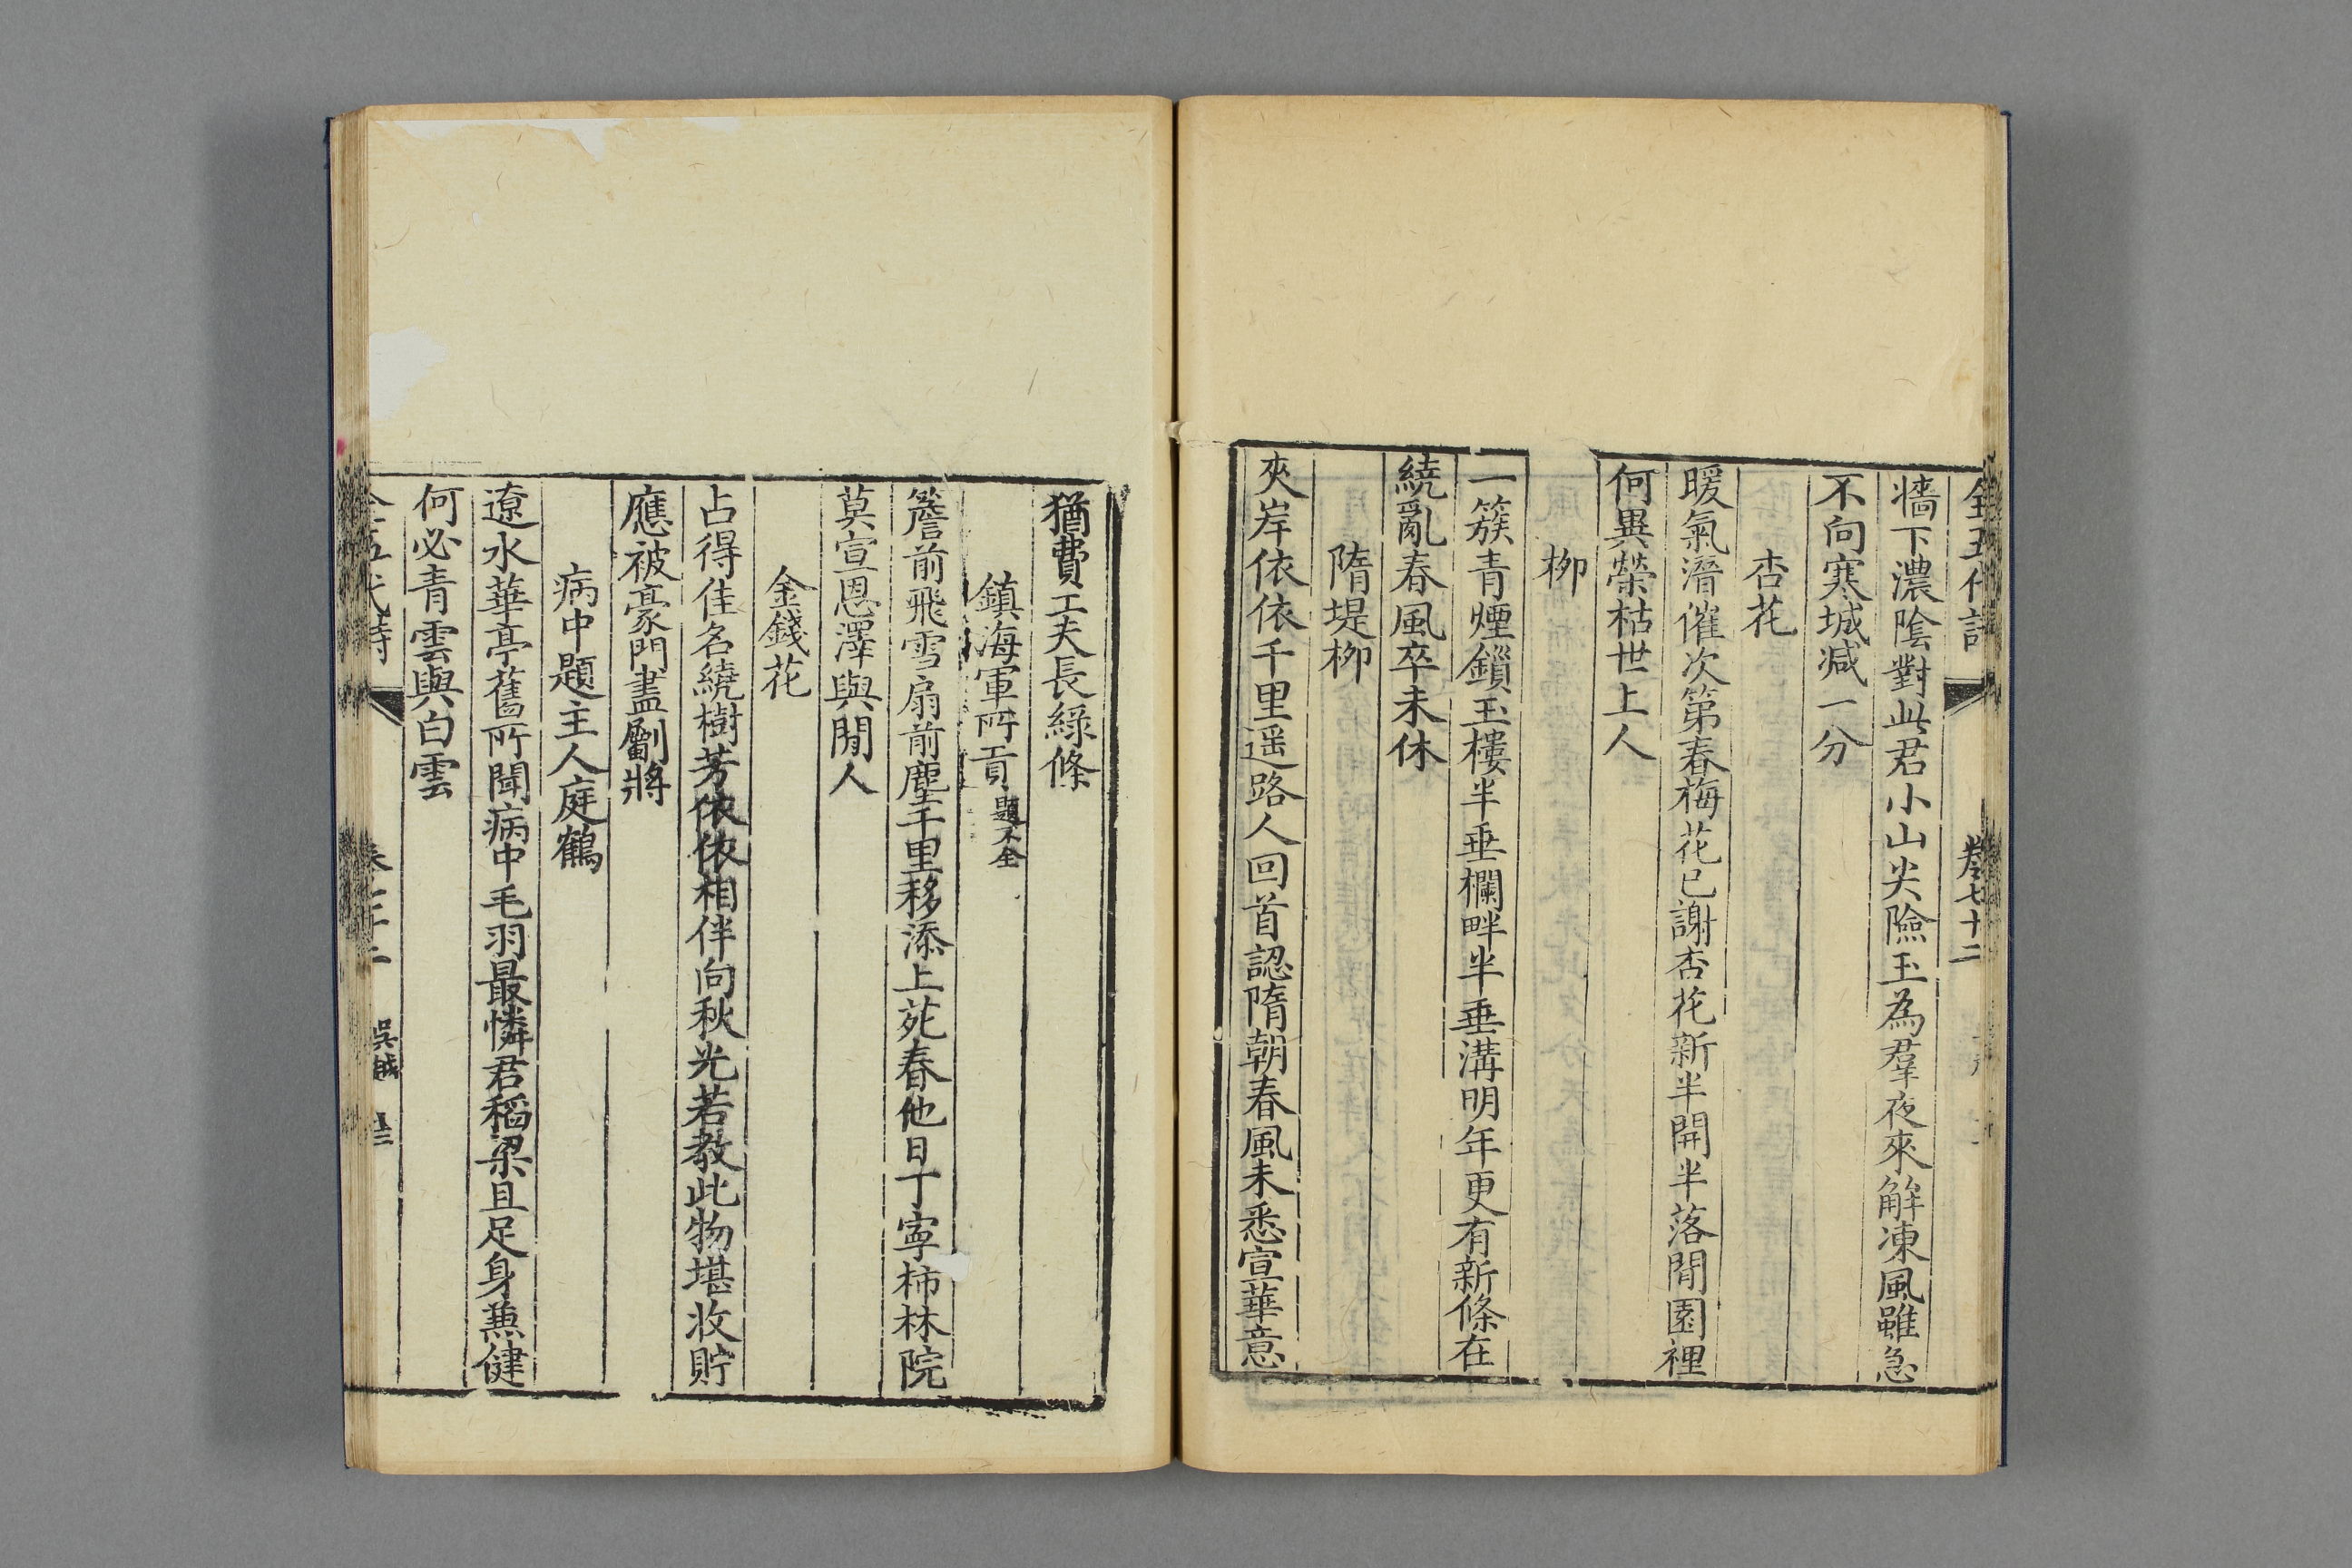 全五代詩 卷七十二
墻下濃陰對此君小山尖險玉為羣夜來解凍風雖急
不向寒城减一分
杏花
暖氣潛催次第春梅花已謝杏花新半開半落閒園裡
何異榮枯世上人
柳
一簇青煙鎻玉樓半垂欄畔半垂溝明年更有新條在
繞亂春風卒未休
隋堤柳
夾岸依依千里遥路人回首認隋朝春風未悉宣華意
猶費工夫長綠條
鎮海軍所貢題不全
簷前飛雪扇前塵千里移添上苑春他日丁寧柿林院
莫宣恩澤與閒人
金錢花
占得佳名繞樹芳依依相伴向秋光若教此物堪收貯
應被豪門盡劚將
病中題主人庭鶴
遼水華亭舊所聞病中毛羽最憐君稻梁且足身兼健
何必青雲與白雲
全五代詩 卷七十二 吳越